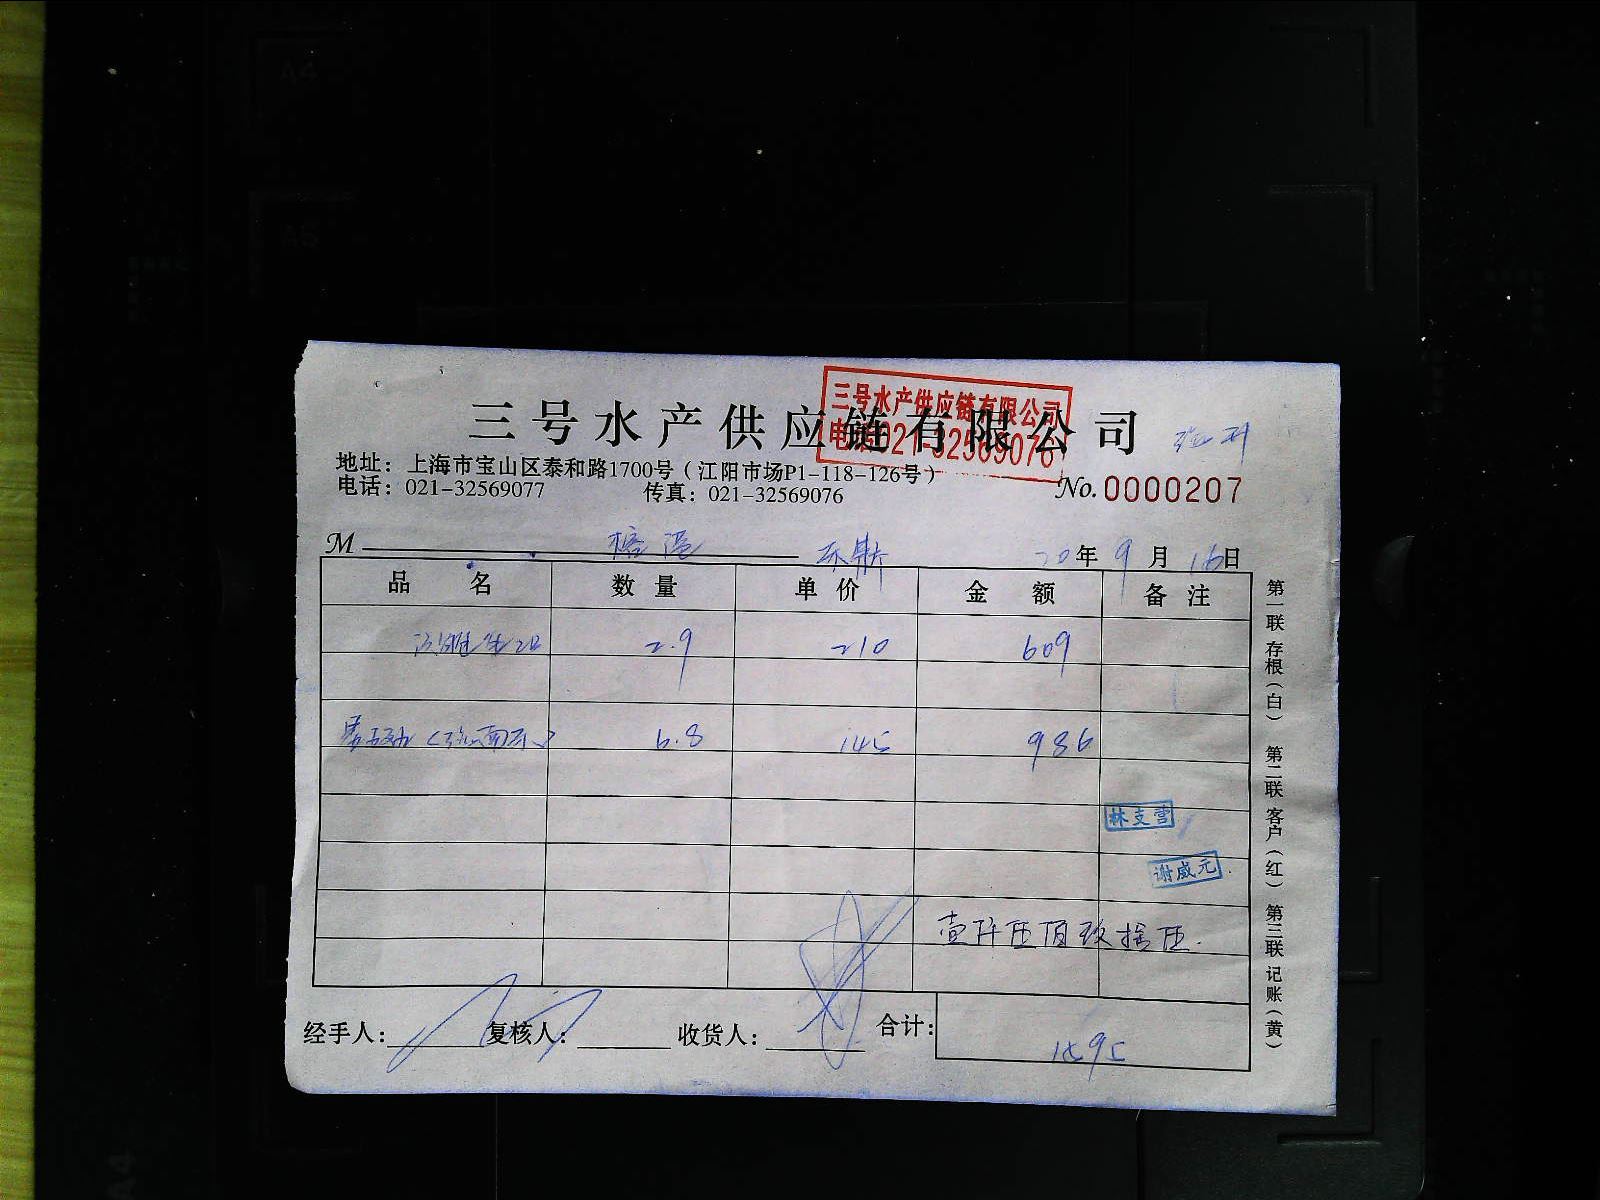 三号水产供应链有限公司
三号水产供应链有限公司
电话021-32569076
地址：上海市宝山区泰和路1700号（江阳市场P1-118-126号）
电话：021-32569077 传真：021-32569076
No. 0000207
M
20年9月16日
品名 数量 单价 金额 备注
2.9 210 609
6.8 145 986
林支营
谢威元
壹仟伍佰玖拾伍
经手人： 复核人： 收货人： 合计：
1595
第一联 存根（白） 第二联 客户（红） 第三联 记账（黄）
A4
A5
A4